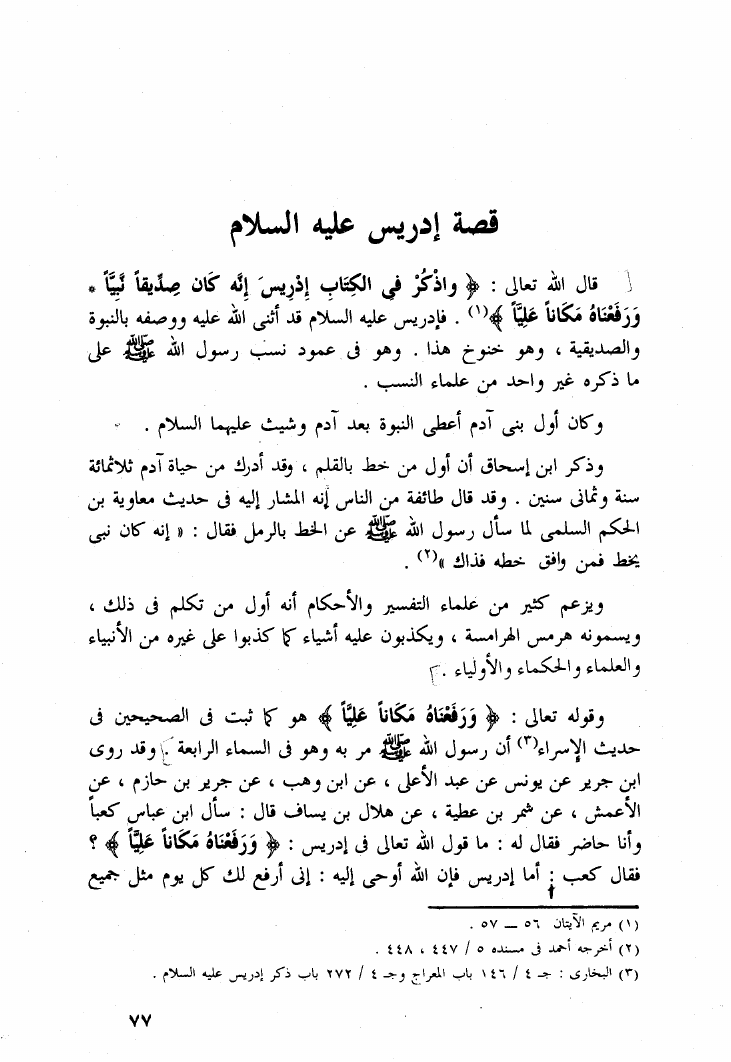 قصة إدريس عليه السلام
قال الله تعالى : ﴿ واذْكُرْ في الكِتَابِ إدْرِيسَ إنَّه كَان صِدِّيقاً نَّبِيَّاً *
وَرَفَعْنَاهُ مَكَاناً عَلِيَّاً ﴾(١) . فإدريس عليه السلام قد أثنى الله عليه ووصفه بالنبوة
والصديقية ، وهو خنوخ هذا . وهو فى عمود نسب رسول الله ﷺ على
ما ذكره غير واحد من علماء النسب .
وكان أول بنى آدم أعطى النبوة بعد آدم وشيث عليهما السلام .
وذكر ابن إسحاق أن أول من خط بالقلم ، وقد أدرك من حياة آدم ثلاثمائة
سنة وثمانى سنين . وقد قال طائفة من الناس إنه المشار إليه فى حديث معاوية بن
الحكم السلمى لما سأل رسول الله ﷺ عن الخط بالرمل فقال : « إنه كان نبى
يخط فمن وافق خطه فذاك »(٢) .
ويزعم كثير من علماء التفسير والأحكام أنه أول من تكلم فى ذلك ،
ويسمونه هرمس الهرامسة ، ويكذبون عليه أشياء كما كذبوا على غيره من الأنبياء
والعلماء والحكماء والأولياء .
وقوله تعالى : ﴿ وَرَفَعْنَاهُ مَكَاناً عَلِيَّاً ﴾ هو كما ثبت فى الصحيحين فى
حديث الإسراء(٣) أن رسول الله ﷺ مر به وهو فى السماء الرابعة . وقد روى
ابن جرير عن يونس عن عبد الأعلى ، عن ابن وهب ، عن جرير بن حازم ، عن
الأعمش ، عن شمر بن عطية ، عن هلال بن يساف قال : سأل ابن عباس كعباً
وأنا حاضر فقال له : ما قول الله تعالى فى إدريس : ﴿ وَرَفَعْنَاهُ مَكَاناً عَلِيَّاً ﴾ ؟
فقال كعب : أما إدريس فإن الله أوحى إليه : إنى أرفع لك كل يوم مثل جميع
(١) مريم الآيتان ٥٦ — ٥٧ .
(٢) أخرجه أحمد فى مسنده ٥ / ٤٤٧ ، ٤٤٨ .
(٣) البخارى : جـ ٤ / ١٤٦ باب المعراج وجـ ٤ / ٢٧٢ باب ذكر إدريس عليه السلام .
٧٧